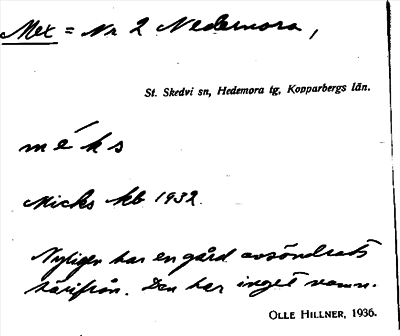 Mex = Nr 2 Nedernora,
St. Skedvi sn, Hedemora tg, Kopparbergs län.
méks
Micks kb 1932.
Nyligen har en gård avsöndrats
därifrån. Den har inget namn.
OLLE HILLNER, 1936.